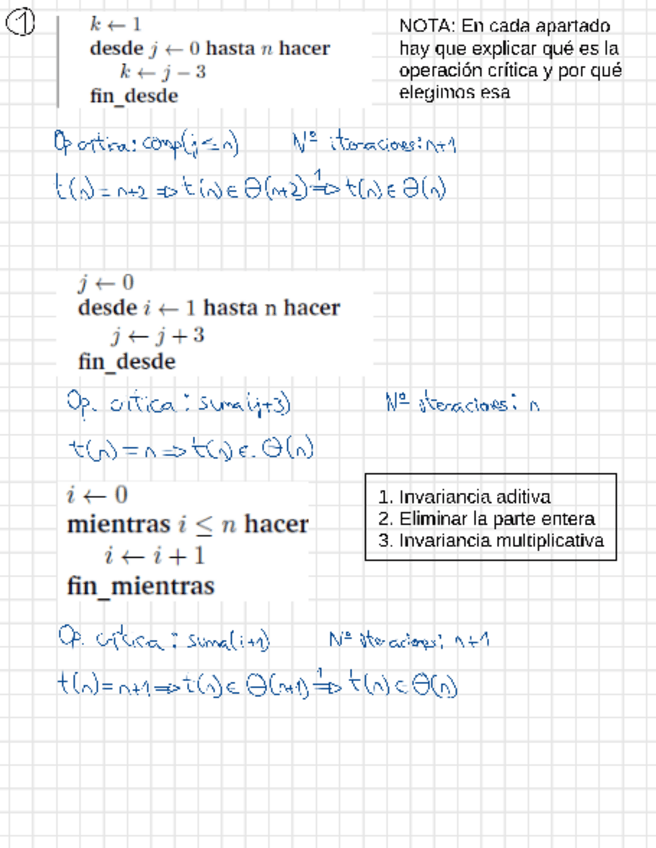 1
k ← 1
desde j ← 0 hasta n hacer
k ← j − 3
fin_desde
NOTA: En cada apartado
hay que explicar qué es la
operación crítica y por qué
elegimos esa
Op crítica: comp(j ≤ n) Nº iteraciones: n+1
t(n) = n+2 ⇒ t(n) ∈ Θ(n+2) ⇒¹ t(n) ∈ Θ(n)
j ← 0
desde i ← 1 hasta n hacer
j ← j + 3
fin_desde
Op. crítica: suma(j+3) Nº iteraciones: n
t(n) = n ⇒ t(n) ∈ Θ(n)
i ← 0
mientras i ≤ n hacer
i ← i + 1
fin_mientras
1. Invariancia aditiva
2. Eliminar la parte entera
3. Invariancia multiplicativa
Op. crítica: suma(i+1) Nº iteraciones: n+1
t(n) = n+1 ⇒ t(n) ∈ Θ(n+1) ⇒¹ t(n) ∈ Θ(n)